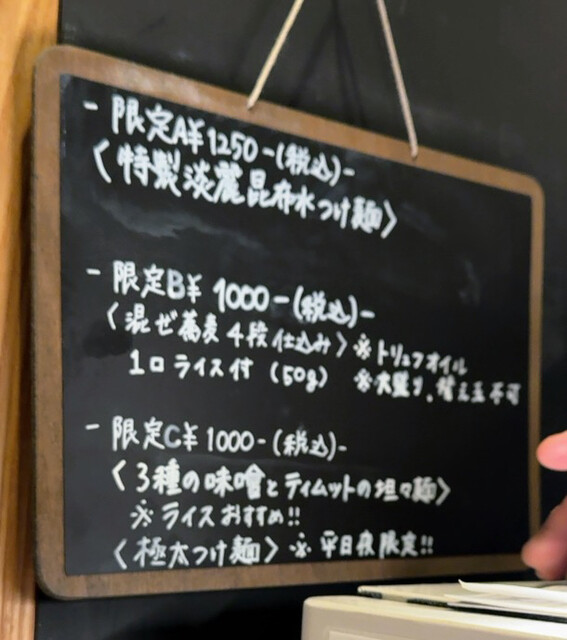 - 限定A¥1250-(税込)-
〈特製淡麗昆布水つけ麺〉
- 限定B¥ 1000-(税込)-
〈混ぜ蕎麦4段仕込み〉※トリュフオイル
1口ライス付 (50g) ※大盛り、替え玉不可
- 限定C¥1000-(税込)-
〈3種の味噌とティムットの坦々麺〉
※ライスおすすめ!!
〈極太つけ麺〉※平日夜限定!!